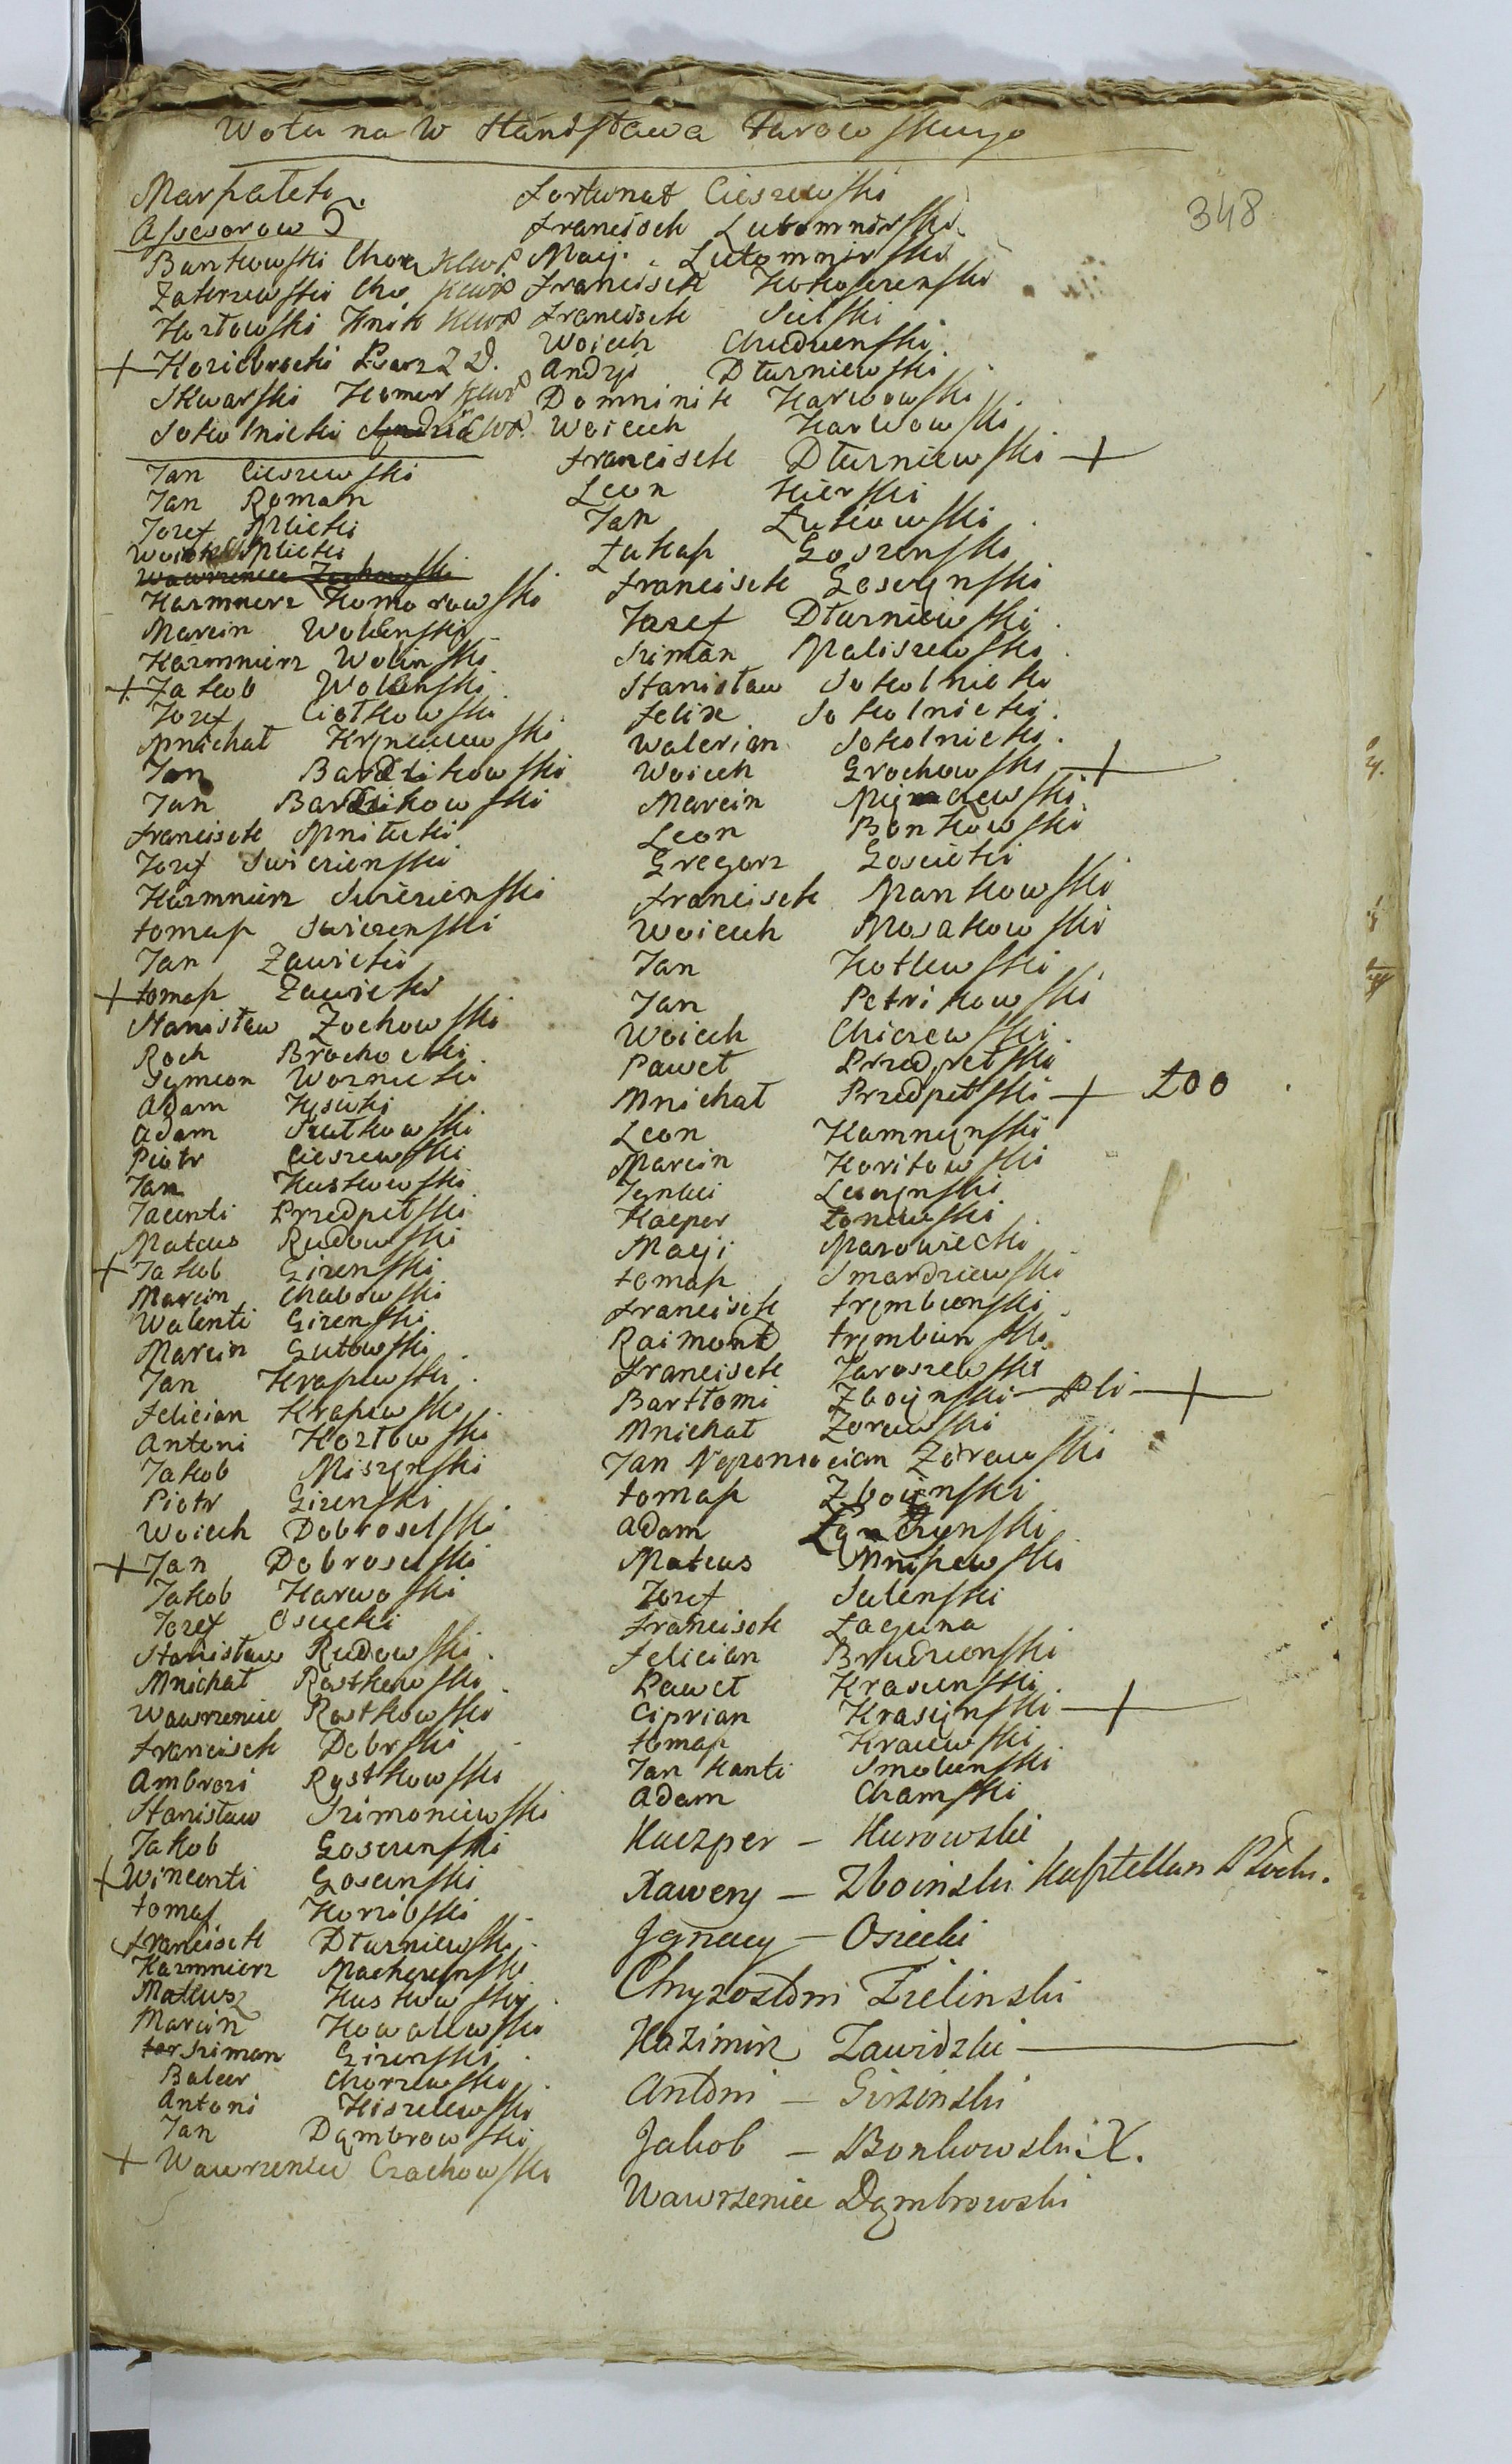 Wota na W Stanisława Karowskiego
348
Marszałek
Assesorow
Bankowski Chor
Zakrzewski Cho
Kozłowski
+ Koziebrocki Pisarz Z D.
Skwarski Komor
Sokolnicki
Jan Cieszewski
Jan Roman
Jozef Mlicki
Woiciech Mlicki
Wawrzeniec Zochowski
Kazmnierz Komorowski
Marcin Wolenski
Kazmnierz Wolinski
+ Jakob Wolenski
Jozef Ciołkowski
Mnichał
Jan Bardzikowski
Jan Bardzikowski
Franciszek Mniewski
Jozef Swiezienski
Kazmnierz Swiezienski
Tomasz Swiezenski
Jan Zawicki
+ Tomasz Zawicki
Stanisław Zochowski
Roch Brochocki
Symeon Woznicki
Adam Kęsicki
Adam Szulkowski
Piotr Cieszewski
Jan Kuskowski
Jacenti Przedpełski
Mateus Rudowski
+ Jakob Gizenski
Marcin Chabowski
Walenti Gizenski
Marcin Gutowski
Jan Krajewski
Felician Krajewski
Antoni Kozłowski
Jakob Miszynski
Piotr Gizenski
Woiciech Dobroselski
+ Jan Dobroselski
Jakob Karwoski
Jozef Osiecki
Stanisław Rudowski
Mnichał Rostkowski
Wawrzeniec Rostkowski
Franciszek Dobrski
Ambrozi Rostkowski
Stanisław Szimoniewski
Jakob Goscienski
+ Wincenti Goscinski
Tomasz Korzibski
Franciszek Dłurniewski
Kazmnierz Macherzynski
Mateusz Kuskowski
Marcin Kowalewski
Sziman Gizenski
Balcer Chorzewski
Antoni Kiszelewski
Jan Dąmbrowski
+ Wawrzeniec Czachowski
Fortunat Cieszewski
Franciszek Lutomnirski
Macij. Lutomnirski
Franciszek Kokoszenski
Franciszek Sielski
Woiciech Chudzienski
Andrzi Dłurniewski
Domninik Karwowski
Woiciech Karwowski
Franciszek Dłurniewski +
Leon Kierski
Jan Łukowski
Łukasz Goszenski
Franciszek Goscynski
Jozef Dłurniewski
Sziman Maliszewski
Stanisław Sokolnicki
Felix Sokolnicki
Walerian Sokolnicki
Woiciech Grochowski +
Marcin
Leon Bonkowski
Gregorz Goscicki
Franciszek Mankowski
Woiciech Mosakowski
Jan Kotlewski
Jan Petrikowski
Woiciech Chiczewski
Paweł Przedpełski
Mnichał Przedpełski + 100
Leon Kamnynski
Marcin Koritowski
Ignaci Leczynski
Kacper Łoniewski
Macyi Mazowiecki
Tomasz Smardzewski
Franciszek Trymbienski
Raimond Trymbinski
Franciszek Jaroszewski
Bartłomi Zboynski +
Mnichał Zorawski
Jan Neponocian Zorawski
Tomasz Zboynski
Adam Łączynski
Mateus Mniszewski
Jozef Sulenski
Franciszek Łaguna
Felician Brudzienski
Paweł Krasienski
Ciprian Krasynski +
Tomasz Kraiewski
Jan Kanti Smolenski
Adam Chamski
Kaczper – Kurowski
Xawery – Zboinski Kasztellan Płocki.
Jgnacy – Osiecki
Chryzostom Zielinski
Kazimirz Zawidzki
Antoni – Gizinski
Jakob – Bonkowski X.
Wawrzeniec Dąmbrowski